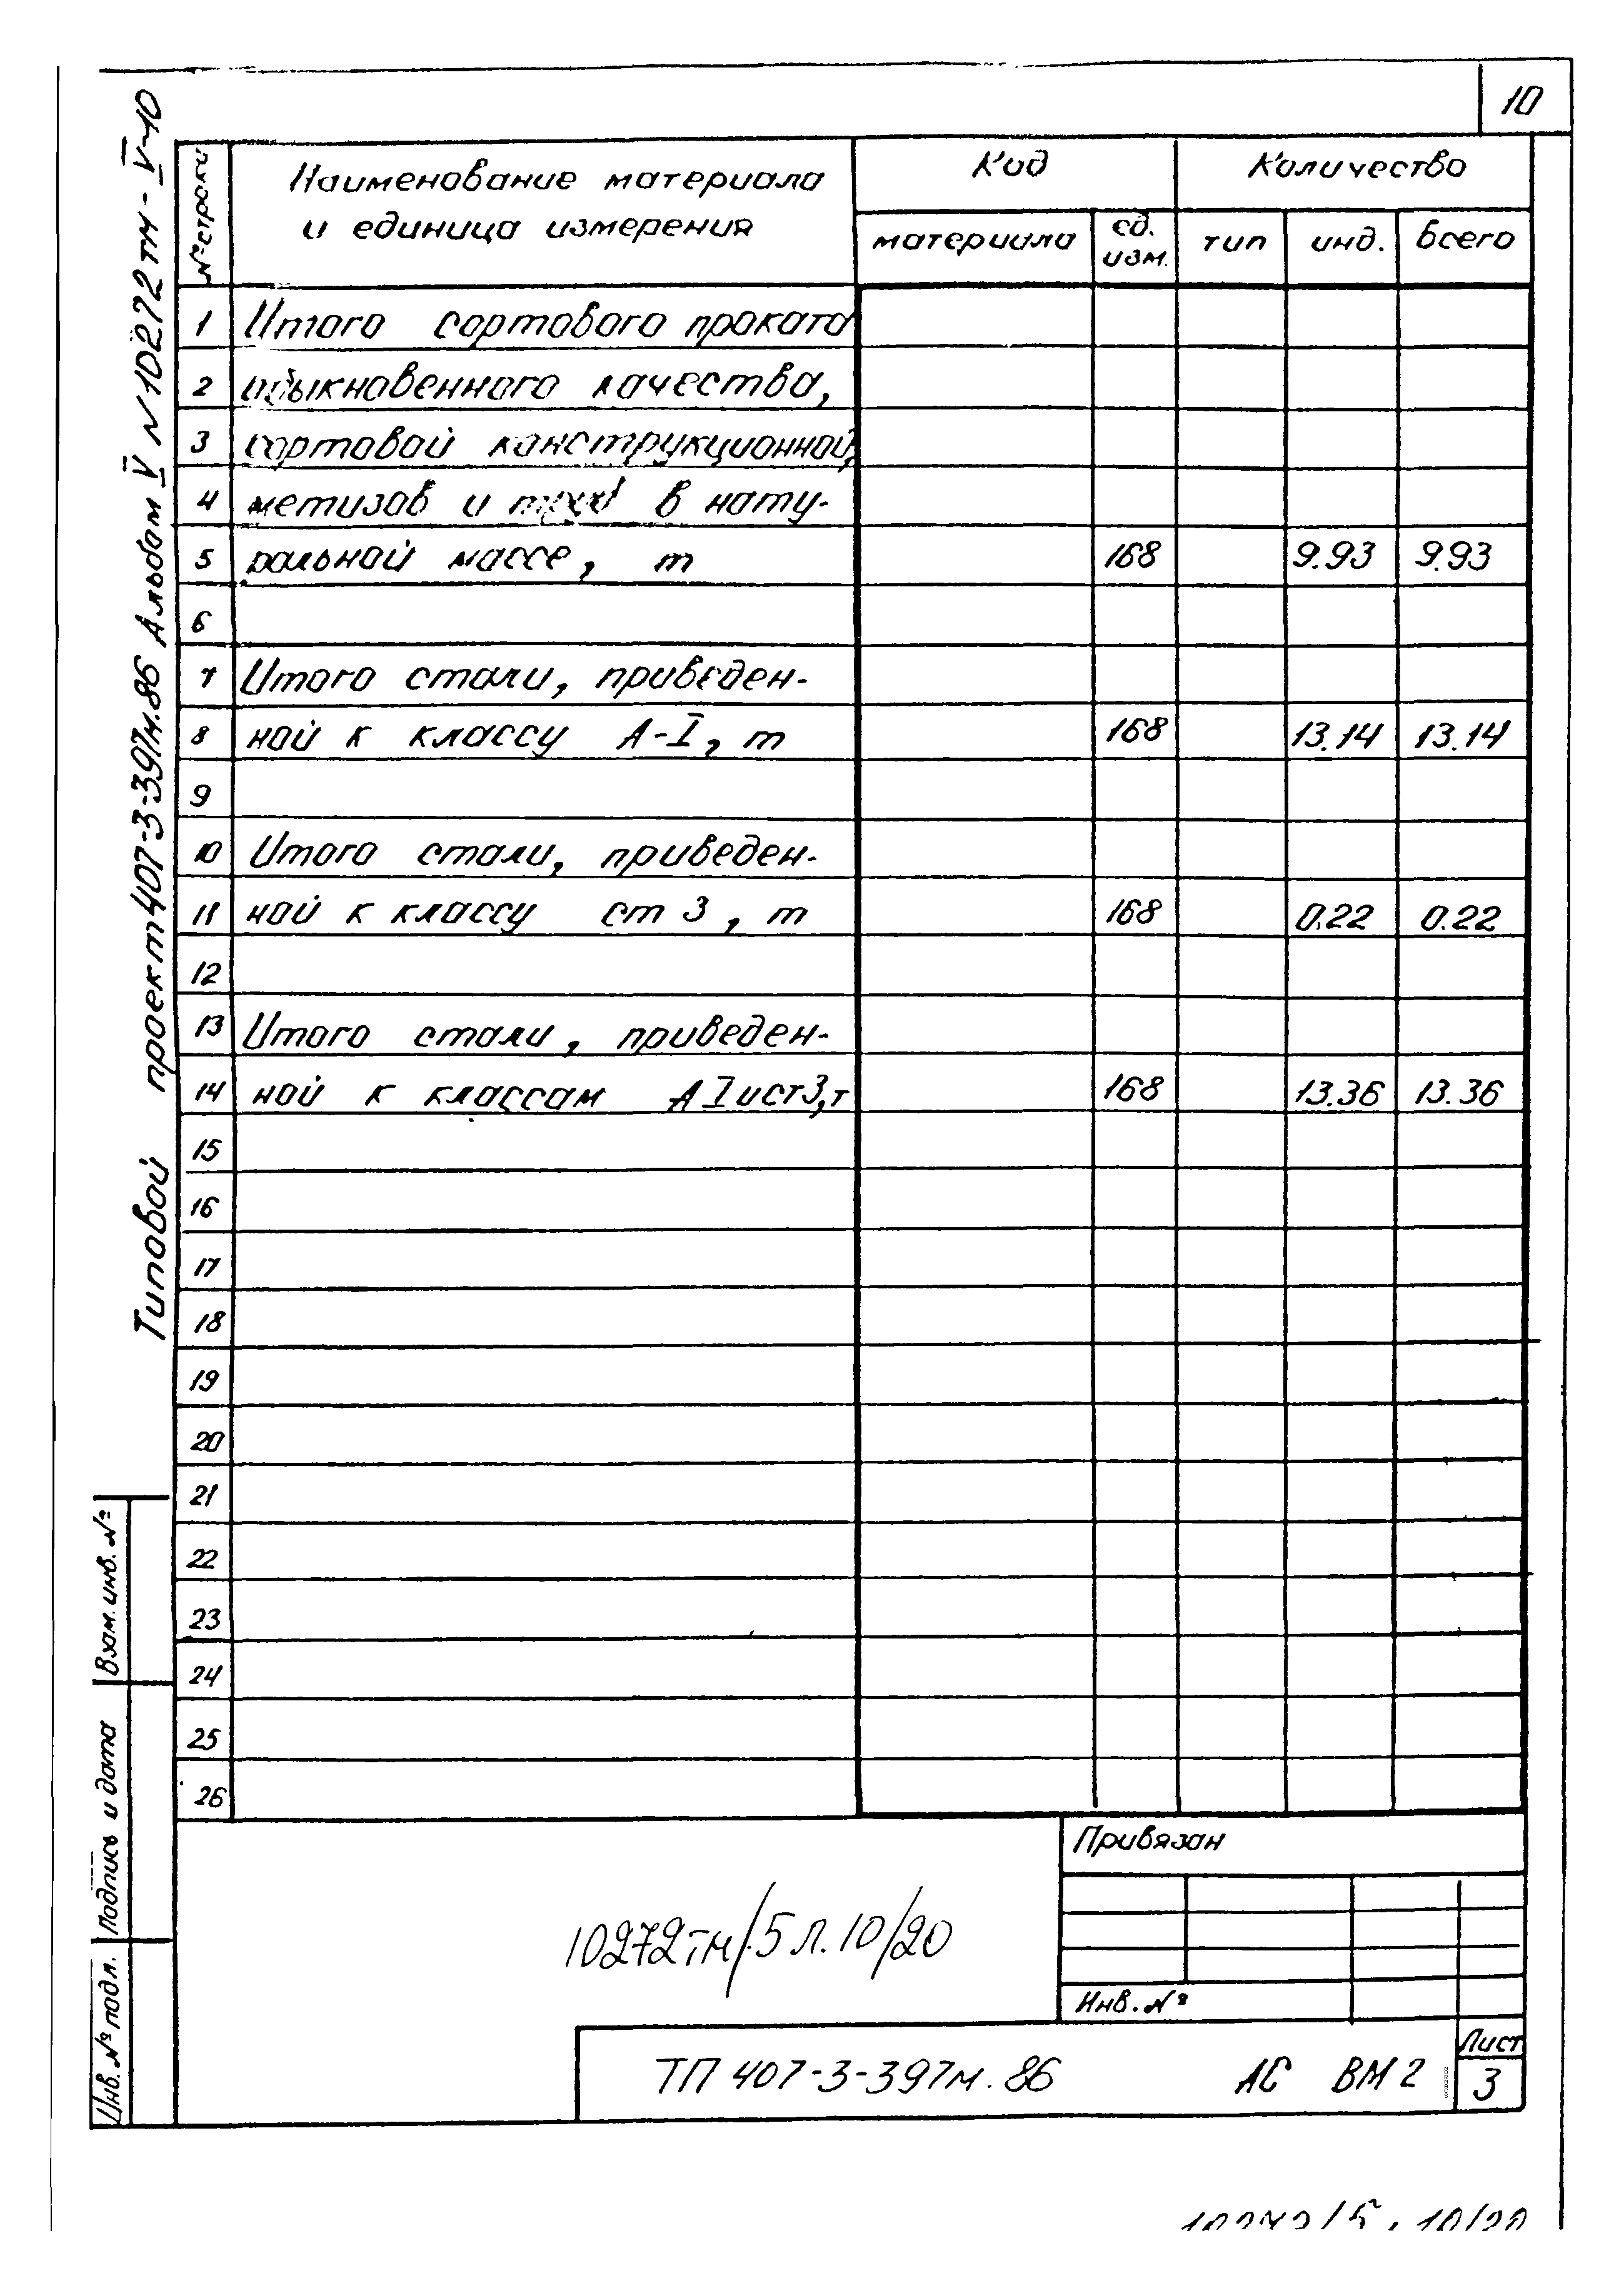 10
Типовой проект 407-3-397м.86 Альбом V N10272тм-V-10
№ строки
Наименование материала
и единица измерения
Код
Количество
материала
ед.
изм.
тип
инд.
всего
1 Итого сортового проката
2 обыкновенного качества,
3 сортовой конструкционной,
4 метизов и в нату-
5 ральной массе, т 168 9.93 9.93
6
7 Итого стали, приведен-
8 ной к классу А-I, т 168 13.14 13.14
9
10 Итого стали, приведен-
11 ной к классу ст 3, т 168 0.22 0.22
12
13 Итого стали, приведен-
14 ной к классам А I и ст3, т 168 13.36 13.36
15
16
17
18
19
20
21
22
23
24
25
26
Взам. инв. №
Подпись и дата
Инв. № подл.
Привязан
10272тм/5 л. 10/20
Инв. №
ТП 407-3-397м.86 АС ВМ 2
Лист
3